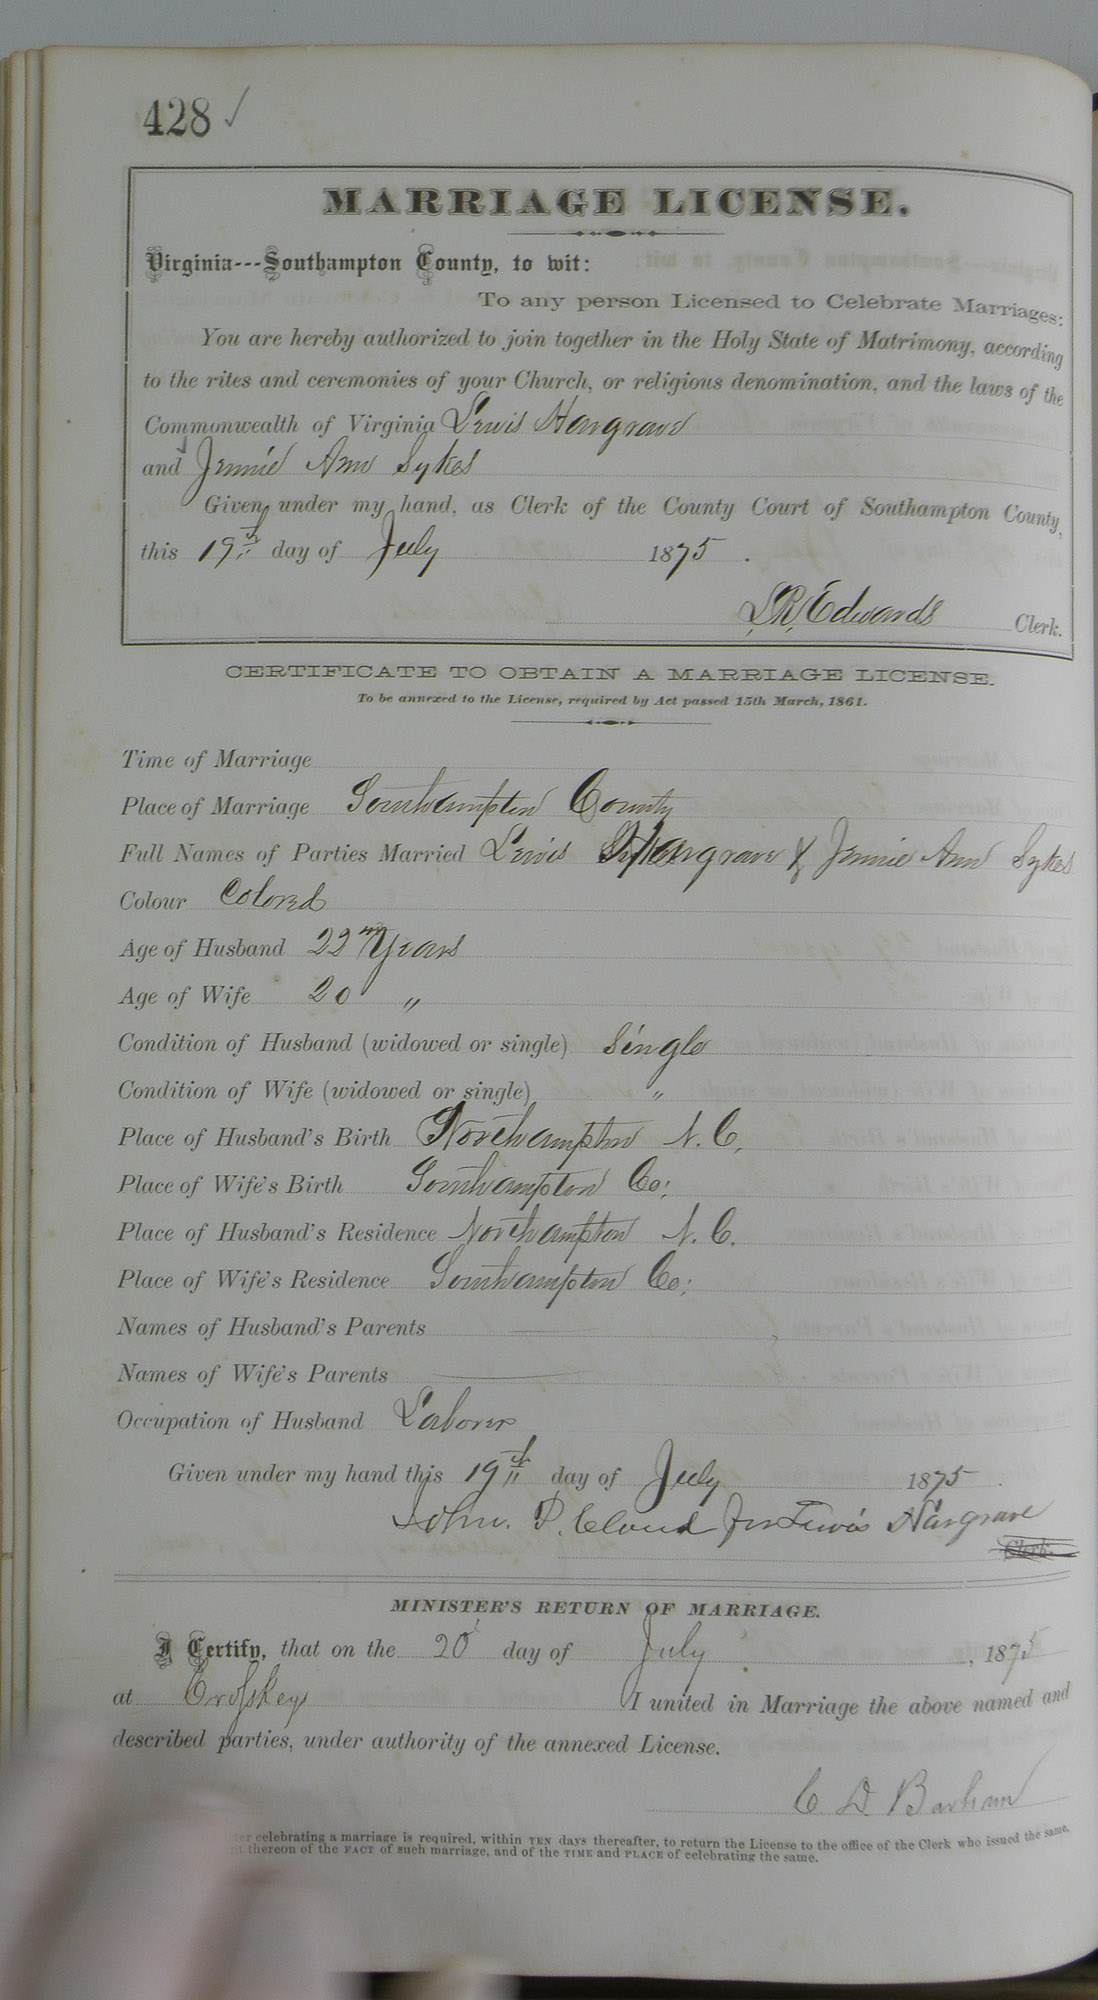 428 ✓
MARRIAGE LICENSE.
Virginia---Southampton County, to wit:
To any person Licensed to Celebrate Marriages:
You are hereby authorized to join together in the Holy State of Matrimony, according
to the rites and ceremonies of your Church, or religious denomination, and the laws of the
Commonwealth of Virginia Lewis Hargrave
and Jennie Ann Sykes
Given under my hand, as Clerk of the County Court of Southampton County,
this 19th day of July 1875.
L. R. Edwards Clerk.
CERTIFICATE TO OBTAIN A MARRIAGE LICENSE.
To be annexed to the License, required by Act passed 15th March, 1861.
Time of Marriage
Place of Marriage Southampton County
Full Names of Parties Married Lewis Hargrave & Jennie Ann Sykes
Colour Colored
Age of Husband 22 Years
Age of Wife 20 "
Condition of Husband (widowed or single) Single
Condition of Wife (widowed or single) "
Place of Husband's Birth Northampton N. C.
Place of Wife's Birth Southampton Co:
Place of Husband's Residence Northampton N. C.
Place of Wife's Residence Southampton Co:
Names of Husband's Parents
Names of Wife's Parents
Occupation of Husband Laborer
Given under my hand this 19th day of July 1875.
John. P. Cloud for Lewis Hargrave
Clerk.
MINISTER'S RETURN OF MARRIAGE.
I Certify, that on the 20 day of July, 1875
at Crosskeys I united in Marriage the above named and
described parties, under authority of the annexed License.
C. D. Barham
celebrating a marriage is required, within TEN days thereafter, to return the License to the office of the Clerk who issued the same,
thereon of the FACT of such marriage, and of the TIME and PLACE of celebrating the same.